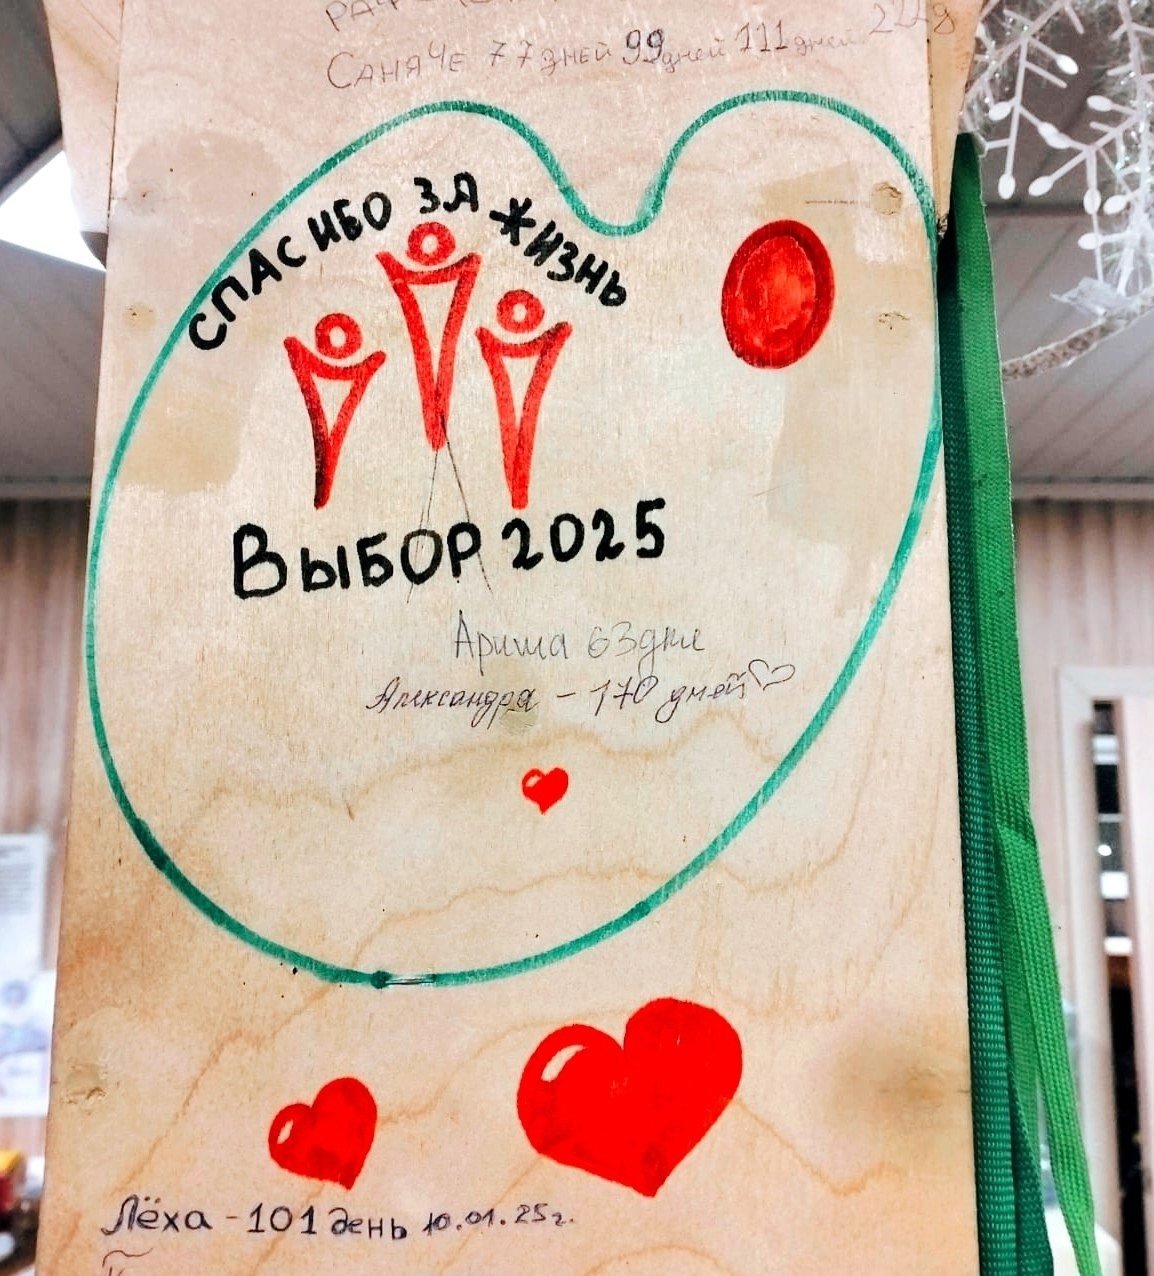 САНЯ ЧЕ 77 дней 99 дней 111 дней
СПАСИБО ЗА ЖИЗНЬ
ВЫБОР 2025
Ариша 63 дня
Александра – 170 дней
Лёха – 101 день 10.01.25г.